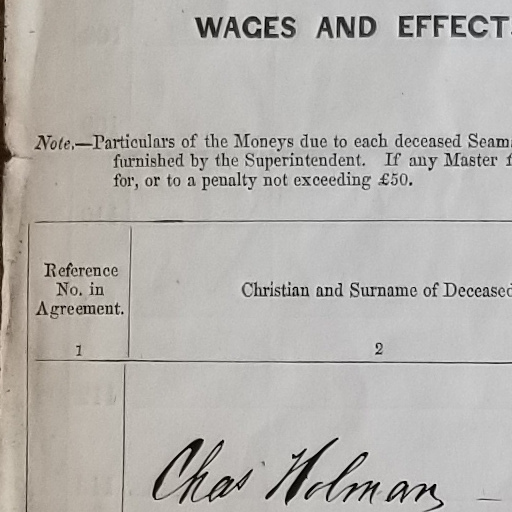 WAGES AND EFFECTS
Note.—Particulars of the Moneys due to each deceased Seam
furnished by the Superintendent. If any Master f
for, or to a penalty not exceeding £50.
Reference
No. in
Agreement.
Christian and Surname of Deceased
1
2
Chas Holman —